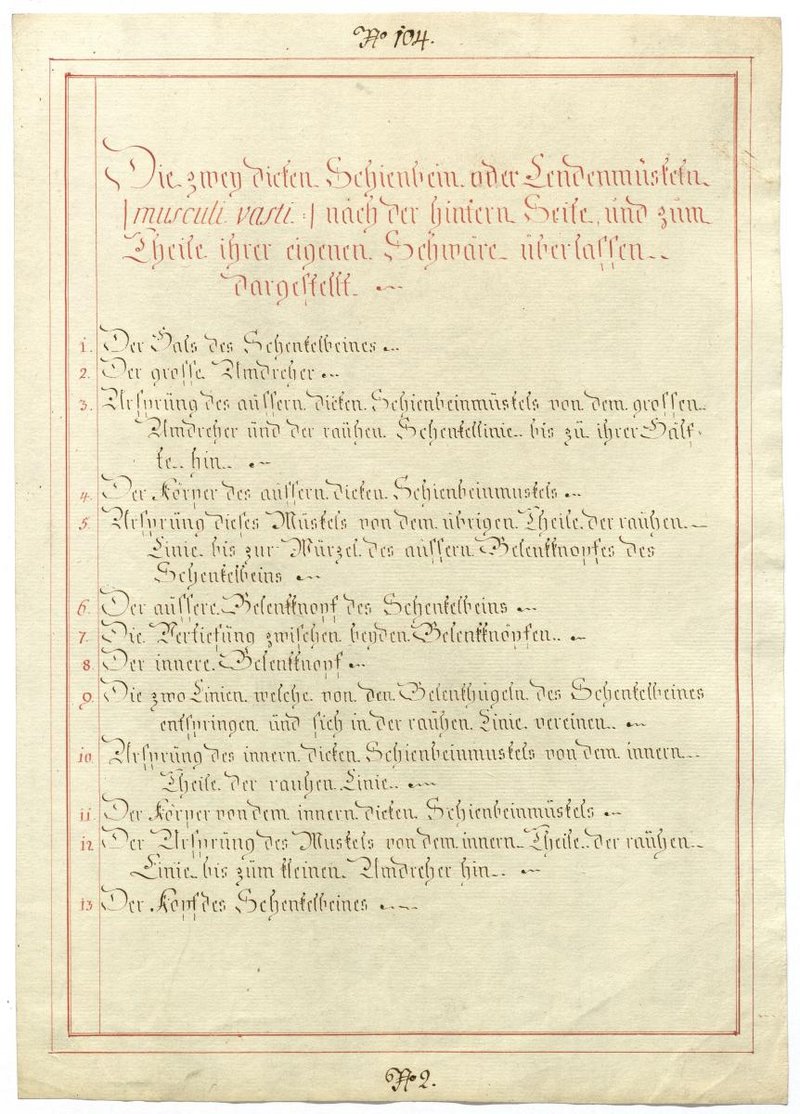 No 104.
Die zwey dicken Schienbein oder Lendenmüskeln
|musculi vasti :| nach der hintern Seite, und zum
Theile ihrer eigenen Schwäre überlassen
dargestellt.
1. Der Hals des Schenkelbeines
2. Der grosse Umdreher
3. Ursprüng des aüssern dicken Schienbeinmüskels von dem grossen
Umdreher ünd der raühen Schenkellinie bis zü ihrer Hälf
te hin
4. Der Körper des aüssern dicken Schienbeinmuskels
5. Ursprüng dieses Müskels von dem übrigen Theile der rauhen
Linie bis zur Würzel des aussern Gelenkknopfes des
Schenkelbeins
6. Der aüssere Gelenkknopf des Schenkelbeins
7. Die Vertiefüng zwischen beyden Gelenkknöpfen
8. Der innere Gelenkknopf
9. Die zwo Linien welche von den Gelenkhügeln des Schenkelbeines
entspringen ünd sich in der raühen Linie vereinen
10 Ursprüng des innern dicken Schienbeinmuskels von dem innern
Theile der rauhen Linie
11 Der Körper von dem innern dicken Schienbeinmüskels
12 Der Ursprüng des Muskels von dem innern Theile der raühen
Linie bis züm kleinen Umdreher hin
13 Der Kopf des Schenkelbeines
No 2.